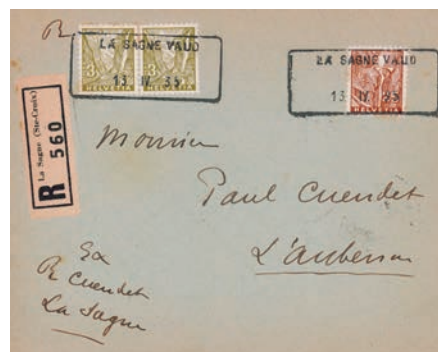 R
LA SAGNE VAUD
13. IV. 35
3 3
HELVETIA HELVETIA
LA SAGNE VAUD
13. IV. 35
HELVETIA
La Sagne (Ste-Croix)
R 560
Monsieur
Paul Cuendet
L'Auberson
Ex
R Cuendet
La Sagne